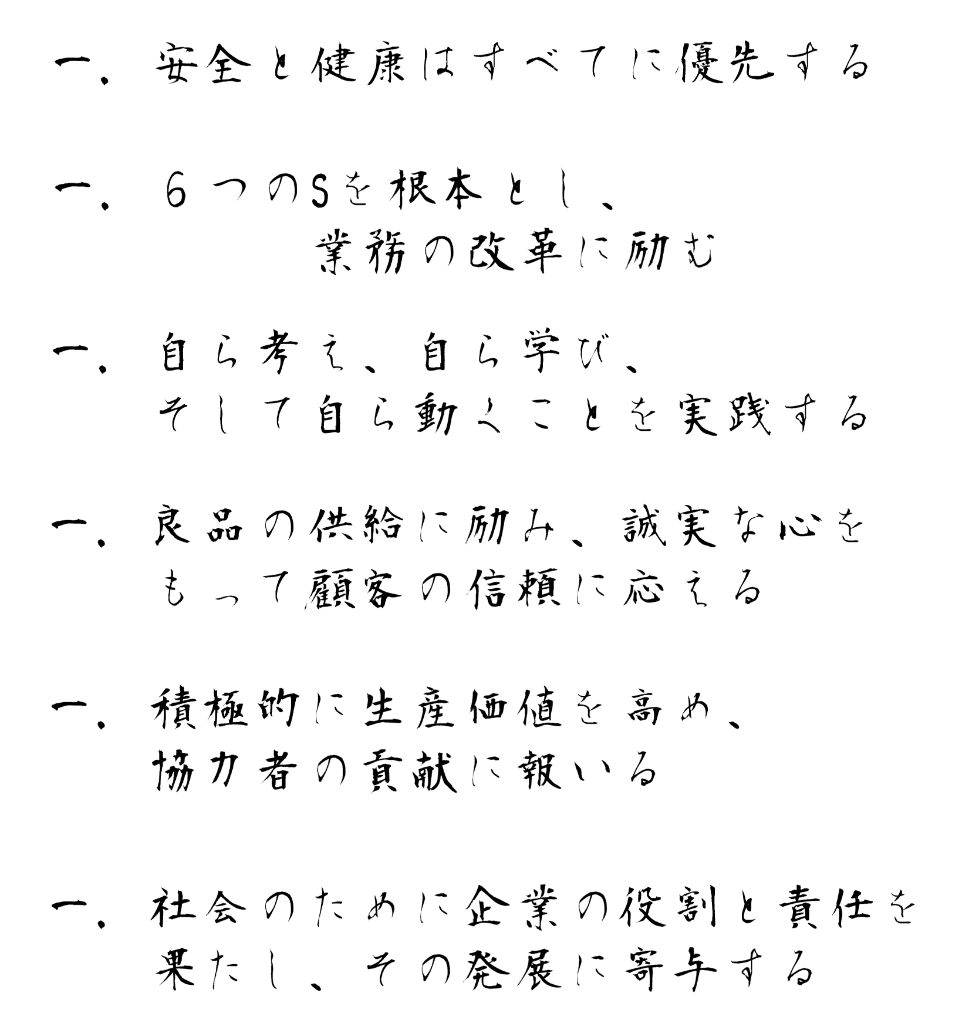 一．安全と健康はすべてに優先する
一．６つのSを根本とし、
業務の改革に励む
一．自ら考え、自ら学び、
そして自ら動くことを実践する
一．良品の供給に励み、誠実な心を
もって顧客の信頼に応える
一．積極的に生産価値を高め、
協力者の貢献に報いる
一．社会のために企業の役割と責任を
果たし、その発展に寄与する